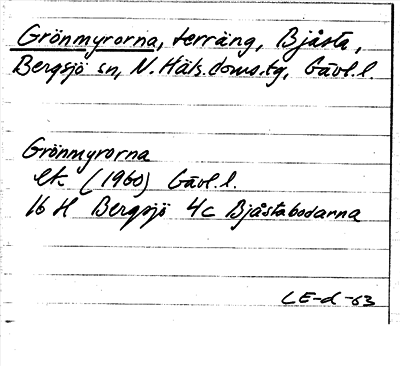 Grönmyrorna, terräng, Bjåsta,
Bergsjö sn, N. Häls. doms.tg, Gävl.l.
Grönmyrorna
ek (1960) Gävl.l.
16 H Bergsjö 4c Bjåstabodarna
LE-d -63